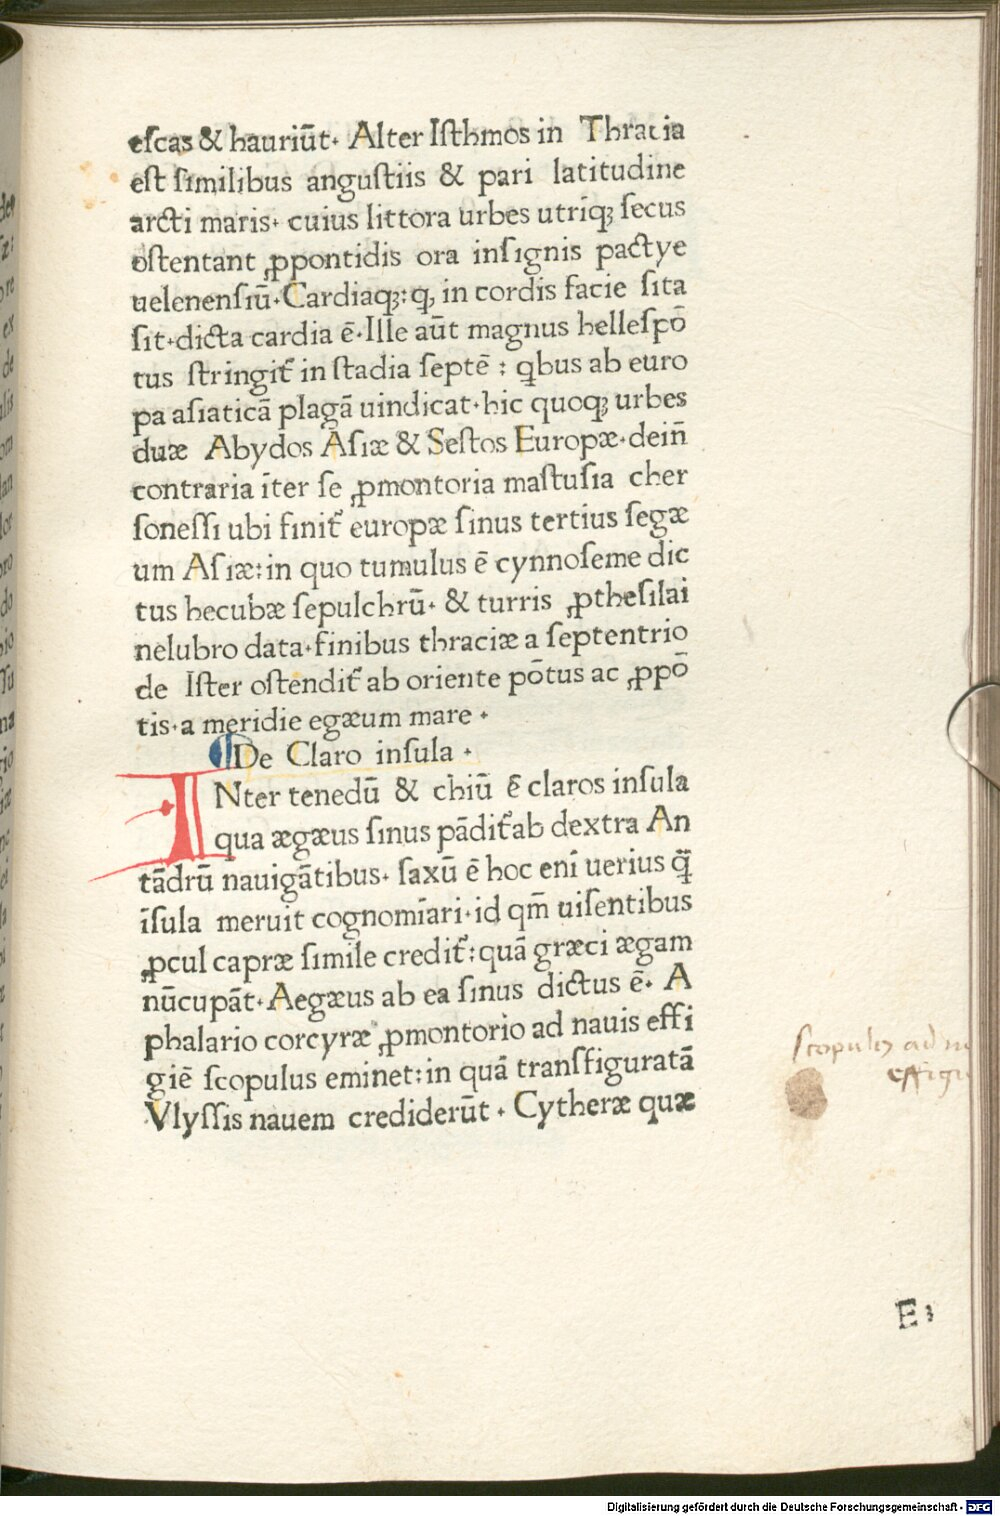 eſcas & hauriūt· Alter Iſthmos in Thracia
eſt ſimilibus anguſtiis & pari latitudine
arcti maris· cuius littora urbes utriqꝫ ſecus
oſtentant ꝓpontidis ora inſignis pactye
uelenenſiū·Cardiaqꝫ:ꝙ in cordis facie ſita
ſit·dicta cardia ē·Ille aūt magnus helleſpō
tus ſtringit᷑ in ſtadia ſeptē : qbus ab euro
pa aſiaticā plagā uindicat·hic quoqꝫ urbes
duæ Abydos Aſiæ & Seſtos Europæ·dein̄
contraria īter ſe ꝓmontoria maſtuſia cher
ſoneſſi ubi finit᷑ europæ ſinus tertius ſegæ
um Aſiæ:in quo tumulus ē cynnoſeme dic
tus hecubæ ſepulchrū· & turris ꝓtheſilai
nelubro data·finibus thraciæ a ſeptentrio
de Iſter oſtendit᷑ ab oriente pōtus ac ꝓpō
tis·a meridie egæum mare ·
De Claro inſula ·
INter tenedū & chiū ē claros inſula
qua ægæus ſinus pādit᷑ab dextra An
tādrū nauigātibus· ſaxū ē hoc eni᷑ uerius q̄
īſula meruit cognomīari·id qm̄ uiſentibus
ꝓcul capræ ſimile credit᷑:quā græci ægam
nūcupāt·Aegæus ab ea ſinus dictus ē· A
phalario corcyræ ꝓmontorio ad nauis effi
giē ſcopulus eminet:in quā tranſfiguratā
Vlyſſis nauem crediderūt · Cytheræ quæ
ſcopulꝰ ad
effigi
E3
Digitalisierung gefördert durch die Deutsche Forschungsgemeinschaft - DFG